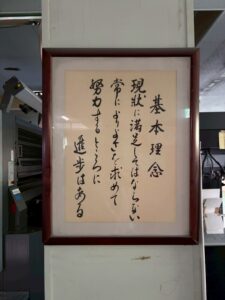 基本理念
現状に満足してはならない
常により高きを求めて
努力するところに
進歩はある